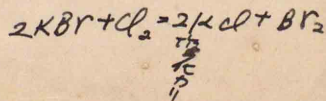 2KBr + Cl2 = 2KCl + Br2